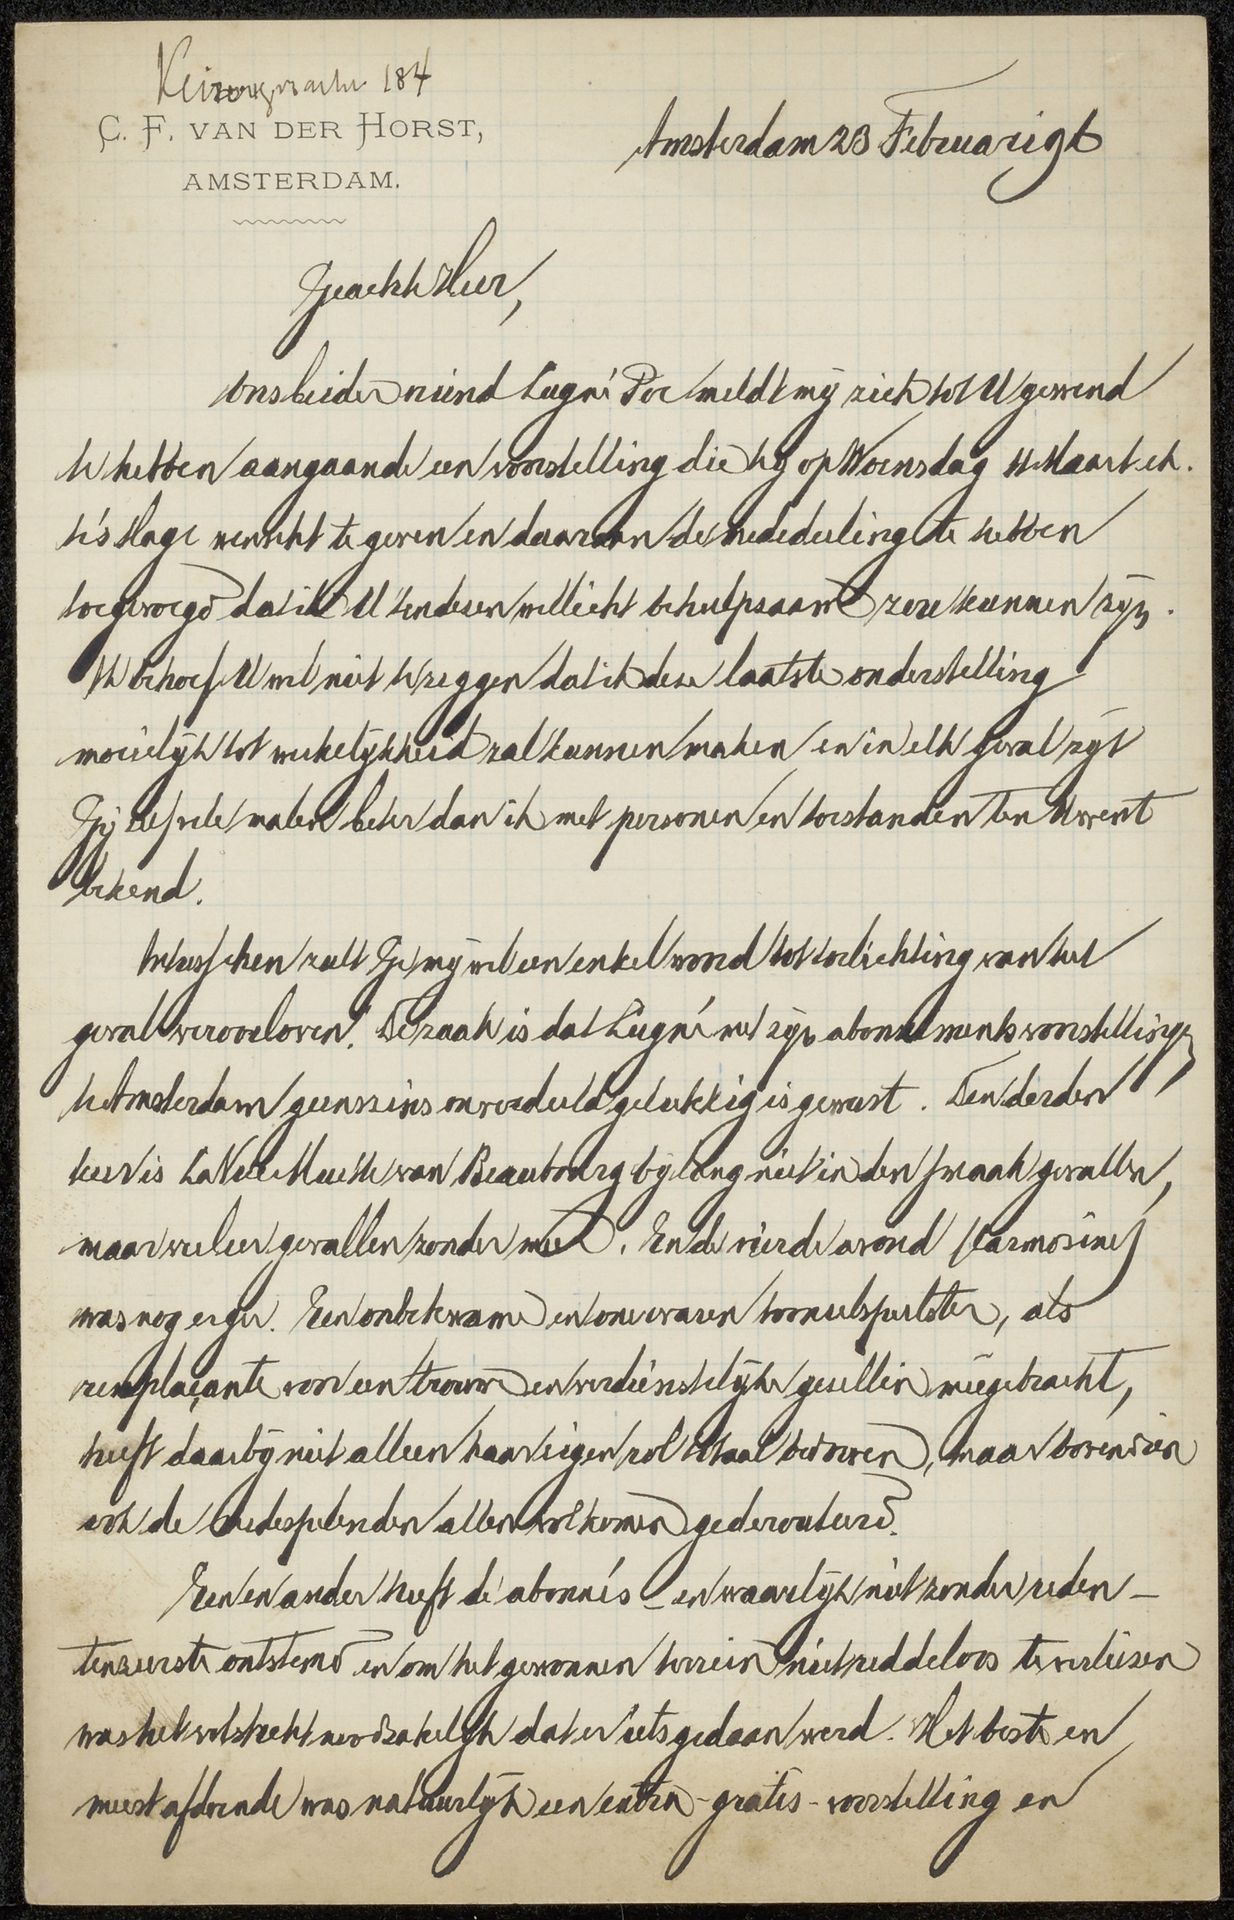 Keizersgracht 184
C. F. VAN DER HORST,
AMSTERDAM.
Amsterdam 23 Februari 96
Geachte Heer,
Ons beider vriend Lugné Poe meldt mij zich tot U gewend
te hebben aangaande een voorstelling die hij op Woensdag 4 Maart e.k.
te 's Hage wenscht te geven en daaraan de mededeeling te hebben
toegevoegd dat ik U tendezen wellicht behulpzaam zou kunnen zijn.
Ik behoef U wel niet te zeggen dat ik deze laatste onderstelling
moeielijk tot werkelijkheid zal kunnen maken en in elk geval zijt
Gij zelf vele malen beter dan ik met personen en toestanden ten Uwent
bekend.
Intusschen zult Ge mij wel een enkel woord tot toelichting van het
geval veroorloven. De zaak is dat Lugné met zijn abonnementsvoorstellingen
te Amsterdam geenszins onverdeeld gelukkig is geweest. Den derden
keer is La Vie Muette van Beaubourg bij lang niet in den smaak gevallen,
maar veeleer gevallen zonder meer. En de vierde avond (Carmosine)
was nog erger. Een onbekwame en onervaren tooneelspeelster, als
remplaçante voor een trouwe en verdienstelijke gezellin meegebracht,
heeft daarbij niet alleen haar eigen rol totaal bedorven, maar bovendien
ook de medespelenden allen volkomen gederouteerd.
Een en ander heeft de abonnés – en waarlijk niet zonder reden –
ten zeerste ontstemd en om het gewonnen terrein niet reddeloos te verliezen
was het volstrekt noodzakelijk dat er iets gedaan werd. Het beste en
meest afdoende was natuurlijk een extra-gratis-voorstelling en